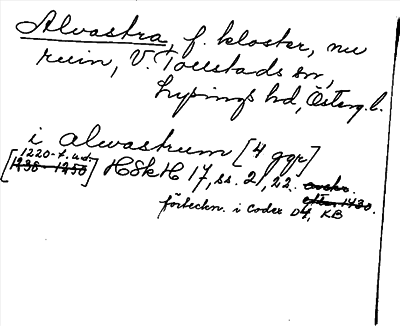 Alvastra, f. kloster, nu
ruin, V. Tollstads sn,
Lysings hd, Österg. l.
i alvastrum [4 ggr]
1220-t. u.d.
[1236-1250] HSkH 17, ss. 21, 22. avskr.
efter 1430.
förteckn. i Codex D4, KB